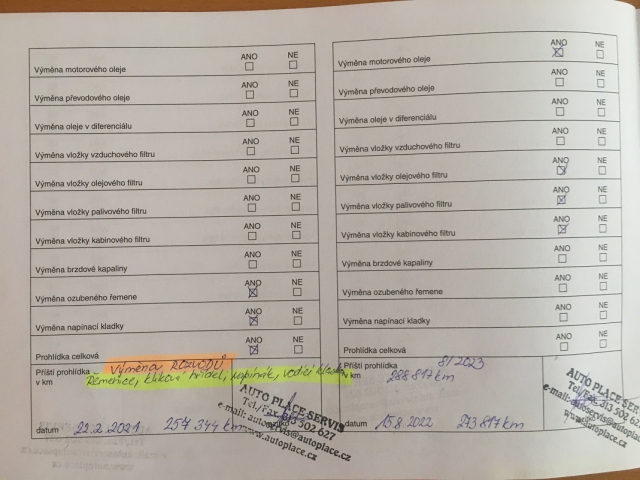 ANO NE
Výměna motorového oleje
ANO NE
Výměna převodového oleje
ANO NE
Výměna oleje v diferenciálu
ANO NE
Výměna vložky vzduchového filtru
ANO NE
Výměna vložky olejového filtru
ANO NE
Výměna vložky palivového filtru
ANO NE
Výměna vložky kabinového filtru
ANO NE
Výměna brzdové kapaliny
ANO NE
Výměna ozubeného řemene
ANO NE
Výměna napínací kladky
ANO NE
Prohlídka celková
Příští prohlídka - Výměna ROZVODŮ
v km Řemenice, kliková hřídel, napínák, vodící kladka
AUTO PLACE SERVIS
Tel./Fax 313 502 627
e-mail: autoservis@autoplace.cz
www.autoplace.cz
datum 22.2.2021 257 344 km
ANO NE
Výměna motorového oleje
ANO NE
Výměna převodového oleje
ANO NE
Výměna oleje v diferenciálu
ANO NE
Výměna vložky vzduchového filtru
ANO NE
Výměna vložky olejového filtru
ANO NE
Výměna vložky palivového filtru
ANO NE
Výměna vložky kabinového filtru
ANO NE
Výměna brzdové kapaliny
ANO NE
Výměna ozubeného řemene
ANO NE
Výměna napínací kladky
ANO NE
Prohlídka celková
Příští prohlídka 8/2023
v km 288 817 km
AUTO PLACE SERVIS
Tel./Fax 313 502 627
e-mail: autoservis@autoplace.cz
www.autoplace.cz
datum 15.8.2022 273 817 km